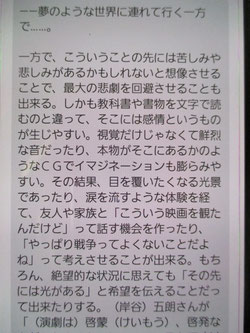 ――夢のような世界に連れて行く一方
で……。
一方で、こういうことの先には苦しみや
悲しみがあるかもしれないと想像させる
ことで、最大の悲劇を回避させることも
出来る。しかも教科書や書物を文字で読
むのと違って、そこには感情というもの
が生じやすい。視覚だけじゃなくて鮮烈
な音だったり、本物がそこにあるかのよ
うなＣＧでイマジネーションも膨らみや
すい。その結果、目を覆いたくなる光景
であったり、涙を流すような体験を経
て、友人や家族と「こういう映画を観た
んだけど」って話す機会を作ったり、
「やっぱり戦争ってよくないことだよ
ね」って考えさせることが出来る。もち
ろん、絶望的な状況に思えても「その先
には光がある」と希望を伝えることだっ
て出来たりする。（岸谷）五朗さんが
「（演劇は）啓蒙（けいもう）、啓発な